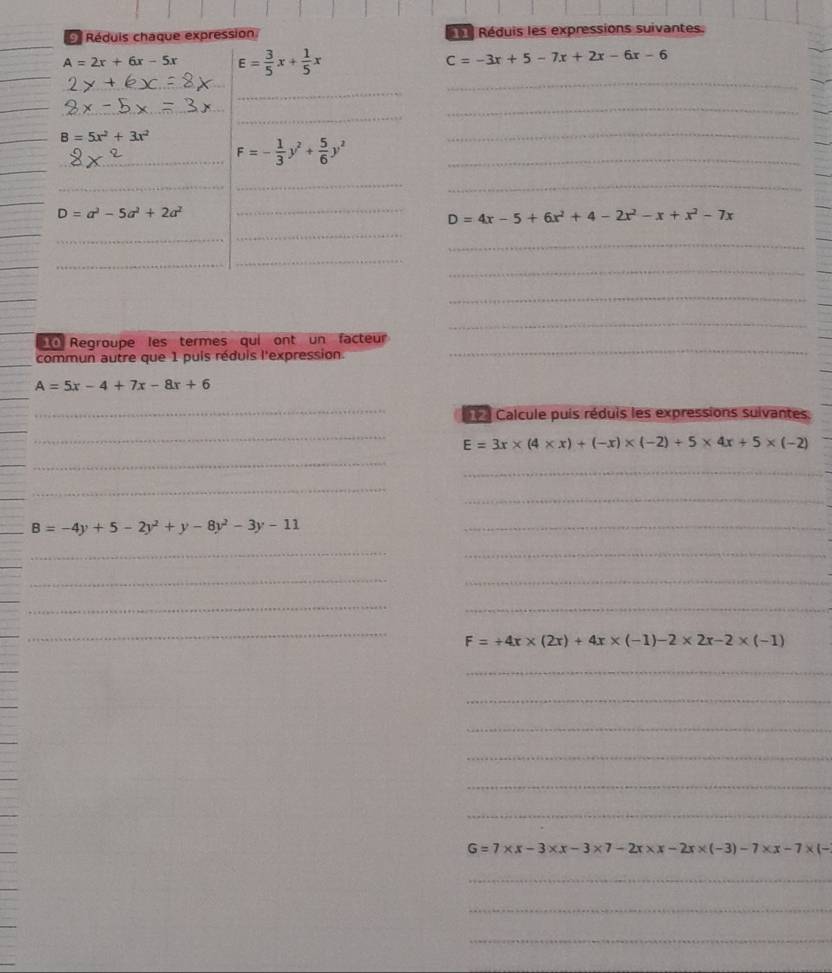 9 Réduis chaque expression.
A = 2x + 6x − 5x
2x + 6x = 8x
8x − 5x = 3x
B = 5x² + 3x²
8x²
D = a² − 5a² + 2a²
E = 3/5 x + 1/5 x
F = −1/3 y² + 5/6 y²
10 Regroupe les termes qui ont un facteur
commun autre que 1 puis réduis l'expression.
A = 5x − 4 + 7x − 8x + 6
B = −4y + 5 − 2y² + y − 8y² − 3y − 11
11 Réduis les expressions suivantes.
C = −3x + 5 − 7x + 2x − 6x − 6
D = 4x − 5 + 6x² + 4 − 2x² − x + x² − 7x
12 Calcule puis réduis les expressions suivantes.
E = 3x × (4 × x) + (−x) × (−2) + 5 × 4x + 5 × (−2)
F = +4x × (2x) + 4x × (−1)−2 × 2x−2 × (−1)
G = 7 × x − 3 × x − 3 × 7 − 2x × x − 2x × (−3) − 7 × x − 7 × (−